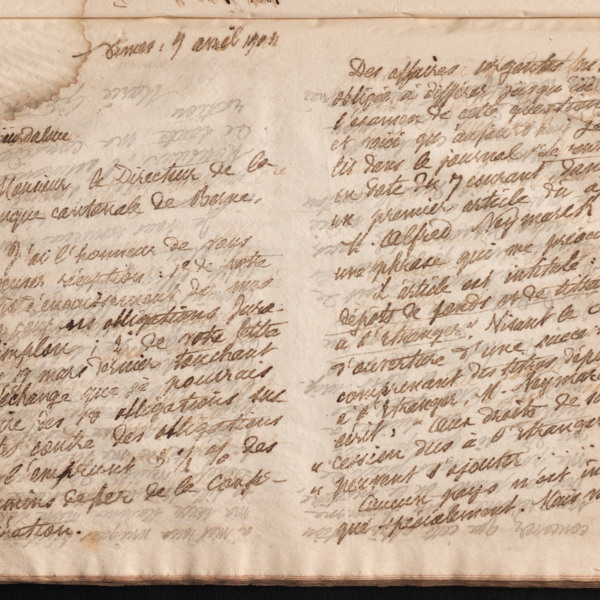 9 avril 1904
Monsieur le Directeur de la
Banque cantonale de Berne,
J'ai l'honneur de vous
réception : 1° de votre
d'encaissement de mes
obligations Jura-
Simplon ; 2° de votre lettre
mars dernier touchant
l'échange que je pourrais
des 78 obligations sus
contre des obligations
l'emprunt 3 ½ % des
chemins de fer de la Confé-
dération.
Des affaires urgentes
obligée à différer jusqu'ici
l'examen de cette question
et voici qu'aujourd'hui je
lis dans le journal "Le
en date du 7 courant, dans
un premier article du
M. Alfred Neymarck
une phrase qui me préoccupe
L'article est intitulé :
dépôts de fonds et de titres
à l'Etranger". Visant le
d'ouverture d'une succes
comprenant des titres dépo
à l'Etranger, M. Neymarck
écrit : "Aux droits de suc
" cession dus à l'Etranger
" peuvent s'ajouter . . .
Aucun pays n'est
qué spécialement. Mais